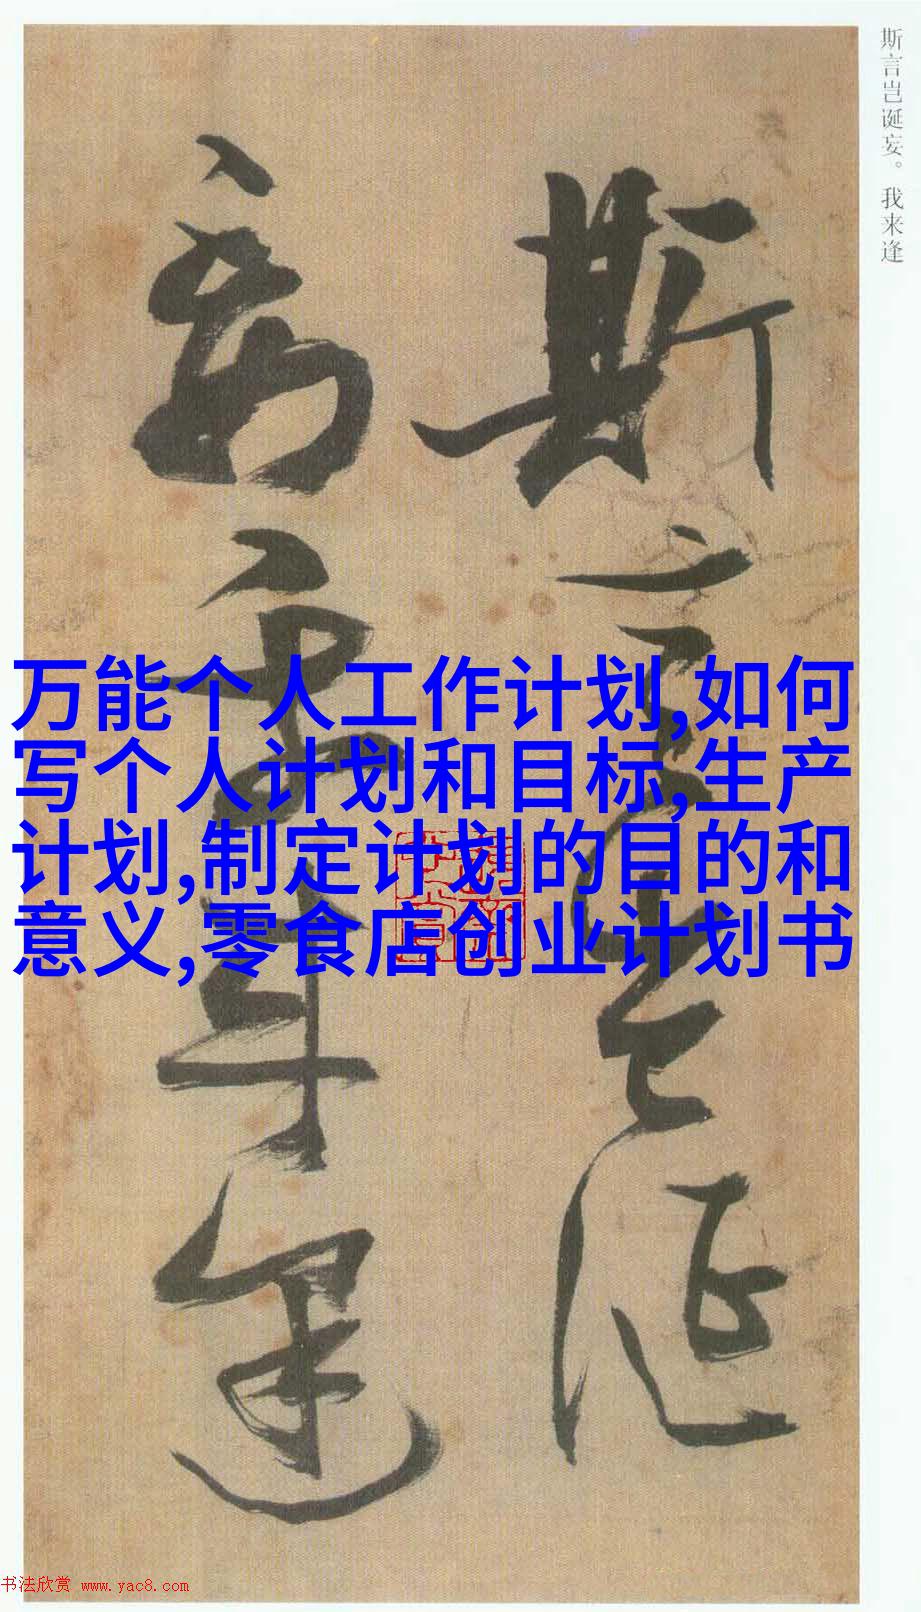 斯言岂诞妄。我来逢
斯言岂诞
妄我来逢
万能个人工作计划,如何
写个人计划和目标,生产
计划,制定计划的目的和
意义,零食店创业计划书
书法欣赏 www.yac8.com